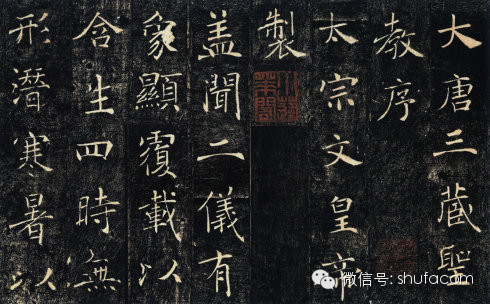 大唐三藏聖
教序
太宗文皇帝
製
盖聞二儀有
象顯覆載以
含生四時無
形潛寒暑以
微信号: shufacom